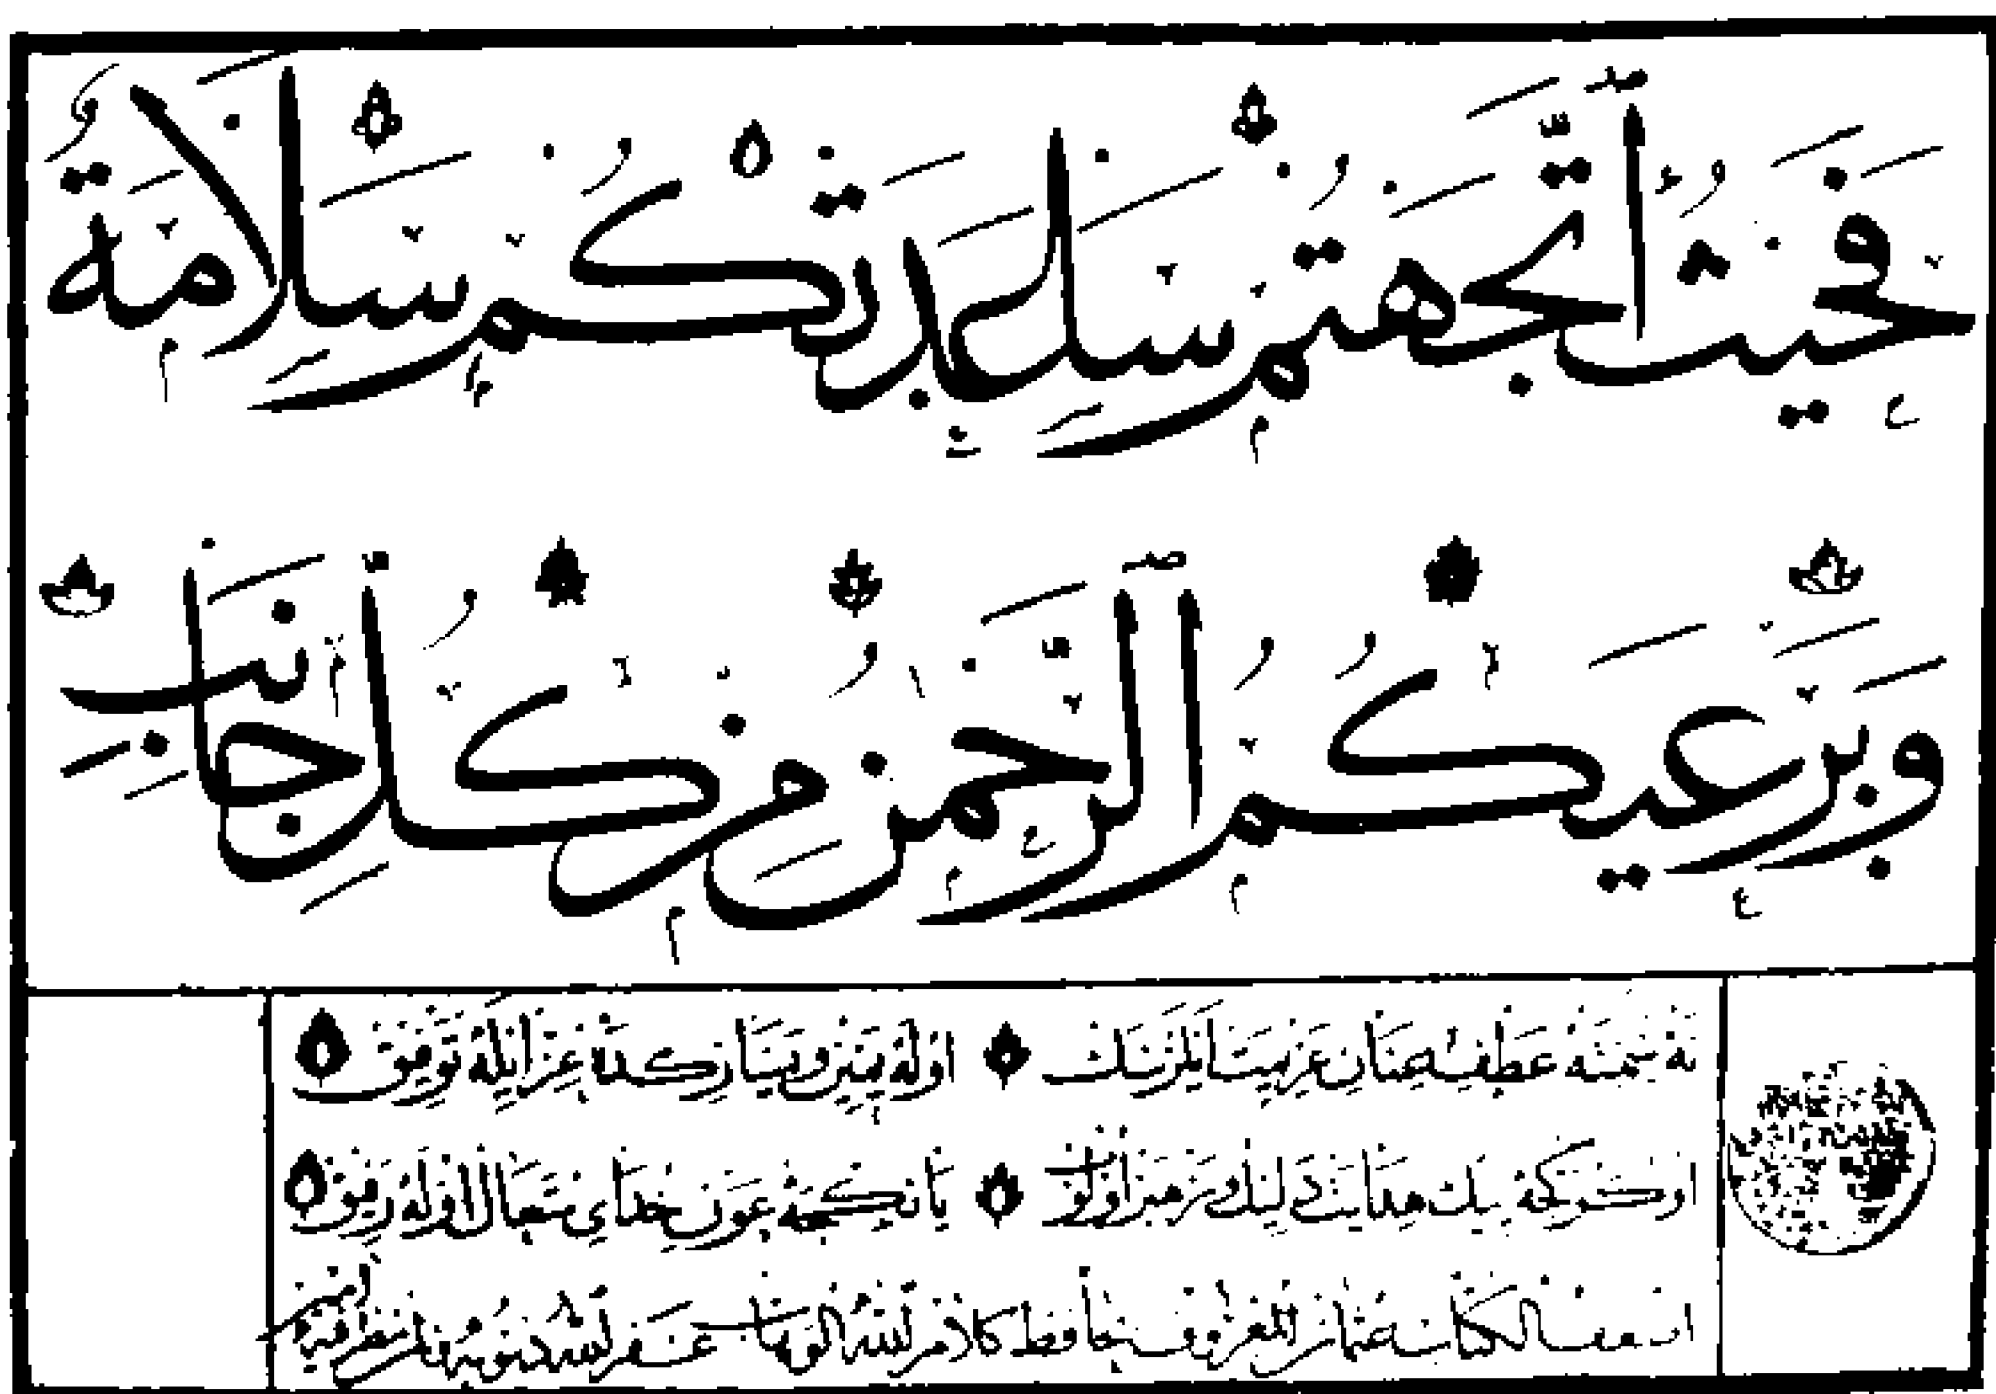 فَحَيْثُ اتَّجَهْتُمْ سَاعَدَتْكُمْ سَلَامَةٌ
وَيَرْعَيكُمُ الرَّحْمٰنُ مِنْ كُلِّ جَانِبِ
نه سمته عطف عنان عزيمت ايلرسك اوله يمين ويسارکده عز ايله توفيق
اوکنجه پيك هدايت دليل ورهبر اولوب يانکجه عون خداى متعال اوله رفيق
اضعف الكتاب عثمان المعروف بحافظ كلام الله الوهاب غفر الله ذنوبه